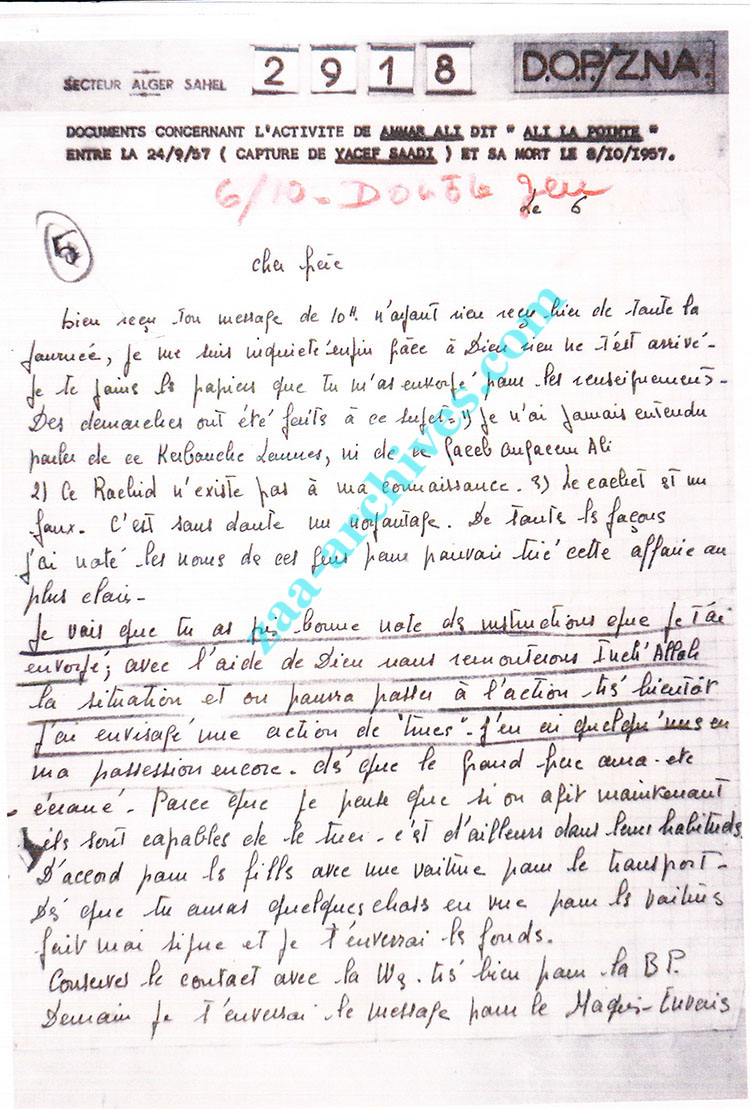 SECTEUR ALGER SAHEL 2 9 1 8 D.O.P/Z.N.A.
DOCUMENTS CONCERNANT L'ACTIVITE DE AMMAR ALI DIT " ALI LA POINTE "
ENTRE LA 24/9/57 ( CAPTURE DE YACEF SAADI ) ET SA MORT LE 8/10/1957.
6/10 - DOUBLE Jeu
Le 6
5
cher frère
bien reçu ton message de 10H. n'ayant rien reçu hier de toute la
journée, je me suis inquieté enfin grâce à Dieu rien ne t'est arrivé.
Je te joins les papiers que tu m'as envoyé pour les renseignements.
Des demarches ont été faits à ce sujet = 1) je n'ai jamais entendu
parler de ce Kerbouche Lounnes, ni de ce Ali
2) Ce Rachid n'existe pas à ma connaissance. 3) Le cachet est un
faux. C'est sans doute un noyautage. De toute les façons
j'ai noté les noms de ces gens pour pouvoir tiré cette affaire au
plus clair -
Je vois que tu as pris bonne note des instructions que je t'ai
envoyé; avec l'aide de Dieu nous remonterons Inch'Allah
la situation et on pourra passer à l'action très bientôt
J'ai envisagé une action de "tues". J'en ai quelqu'unes en
ma possession encore. dès que le grand frère aura etc
écroué. Parce que je pense que si on agit maintenant
ils sont capables de le tuer. c'est d'ailleurs dans leurs habituds.
D'accord pour les fills avec une voiture pour le transport -
Dès que tu auras quelques choses en vue pour les voitures
fait moi signe et je t'enverrai les fonds.
Conserves le contact avec la W3. très bien pour la BP.
Demain je t'enverrai le message pour le Maquis - Envois
zaa-archives.com